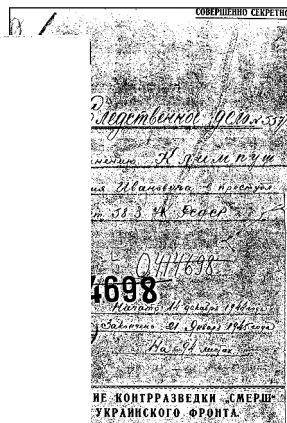 СОВЕРШЕННО СЕКРЕТНО
Следственное дело № 557
нению Климпуш
ия Ивановича в преступл
ст 58-3 УК РСФСР
0414698
4698
Начато 14 декабря 1944 года
Закончено 21 января 1945 года
На 94 листах
ИЕ КОНТРРАЗВЕДКИ „СМЕРШ"
УКРАИНСКОГО ФРОНТА.